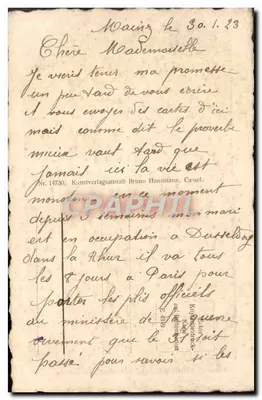 Mainz le 30.1.23
Chère Mademoiselle
Je viens tenir ma promesse
un peu tard de vous écrire
et vous envoyer des cartes d'ici
mais comme dit le proverbe
mieux vaut tard que
jamais ici la vie est
Nr. 14730, Kunstverlagsanstalt Bruno Hansmann, Cassel.
monotone en ce moment
depuis 3 semaines mon mari
est en occupation a Dusseldorf
dans la Rhur il va tous
les 8 jours a Paris pour
porter les plis officiels
au ministère de la guerre
vivement que le 31 soit
passé pour savoir si les
CPAPHIL